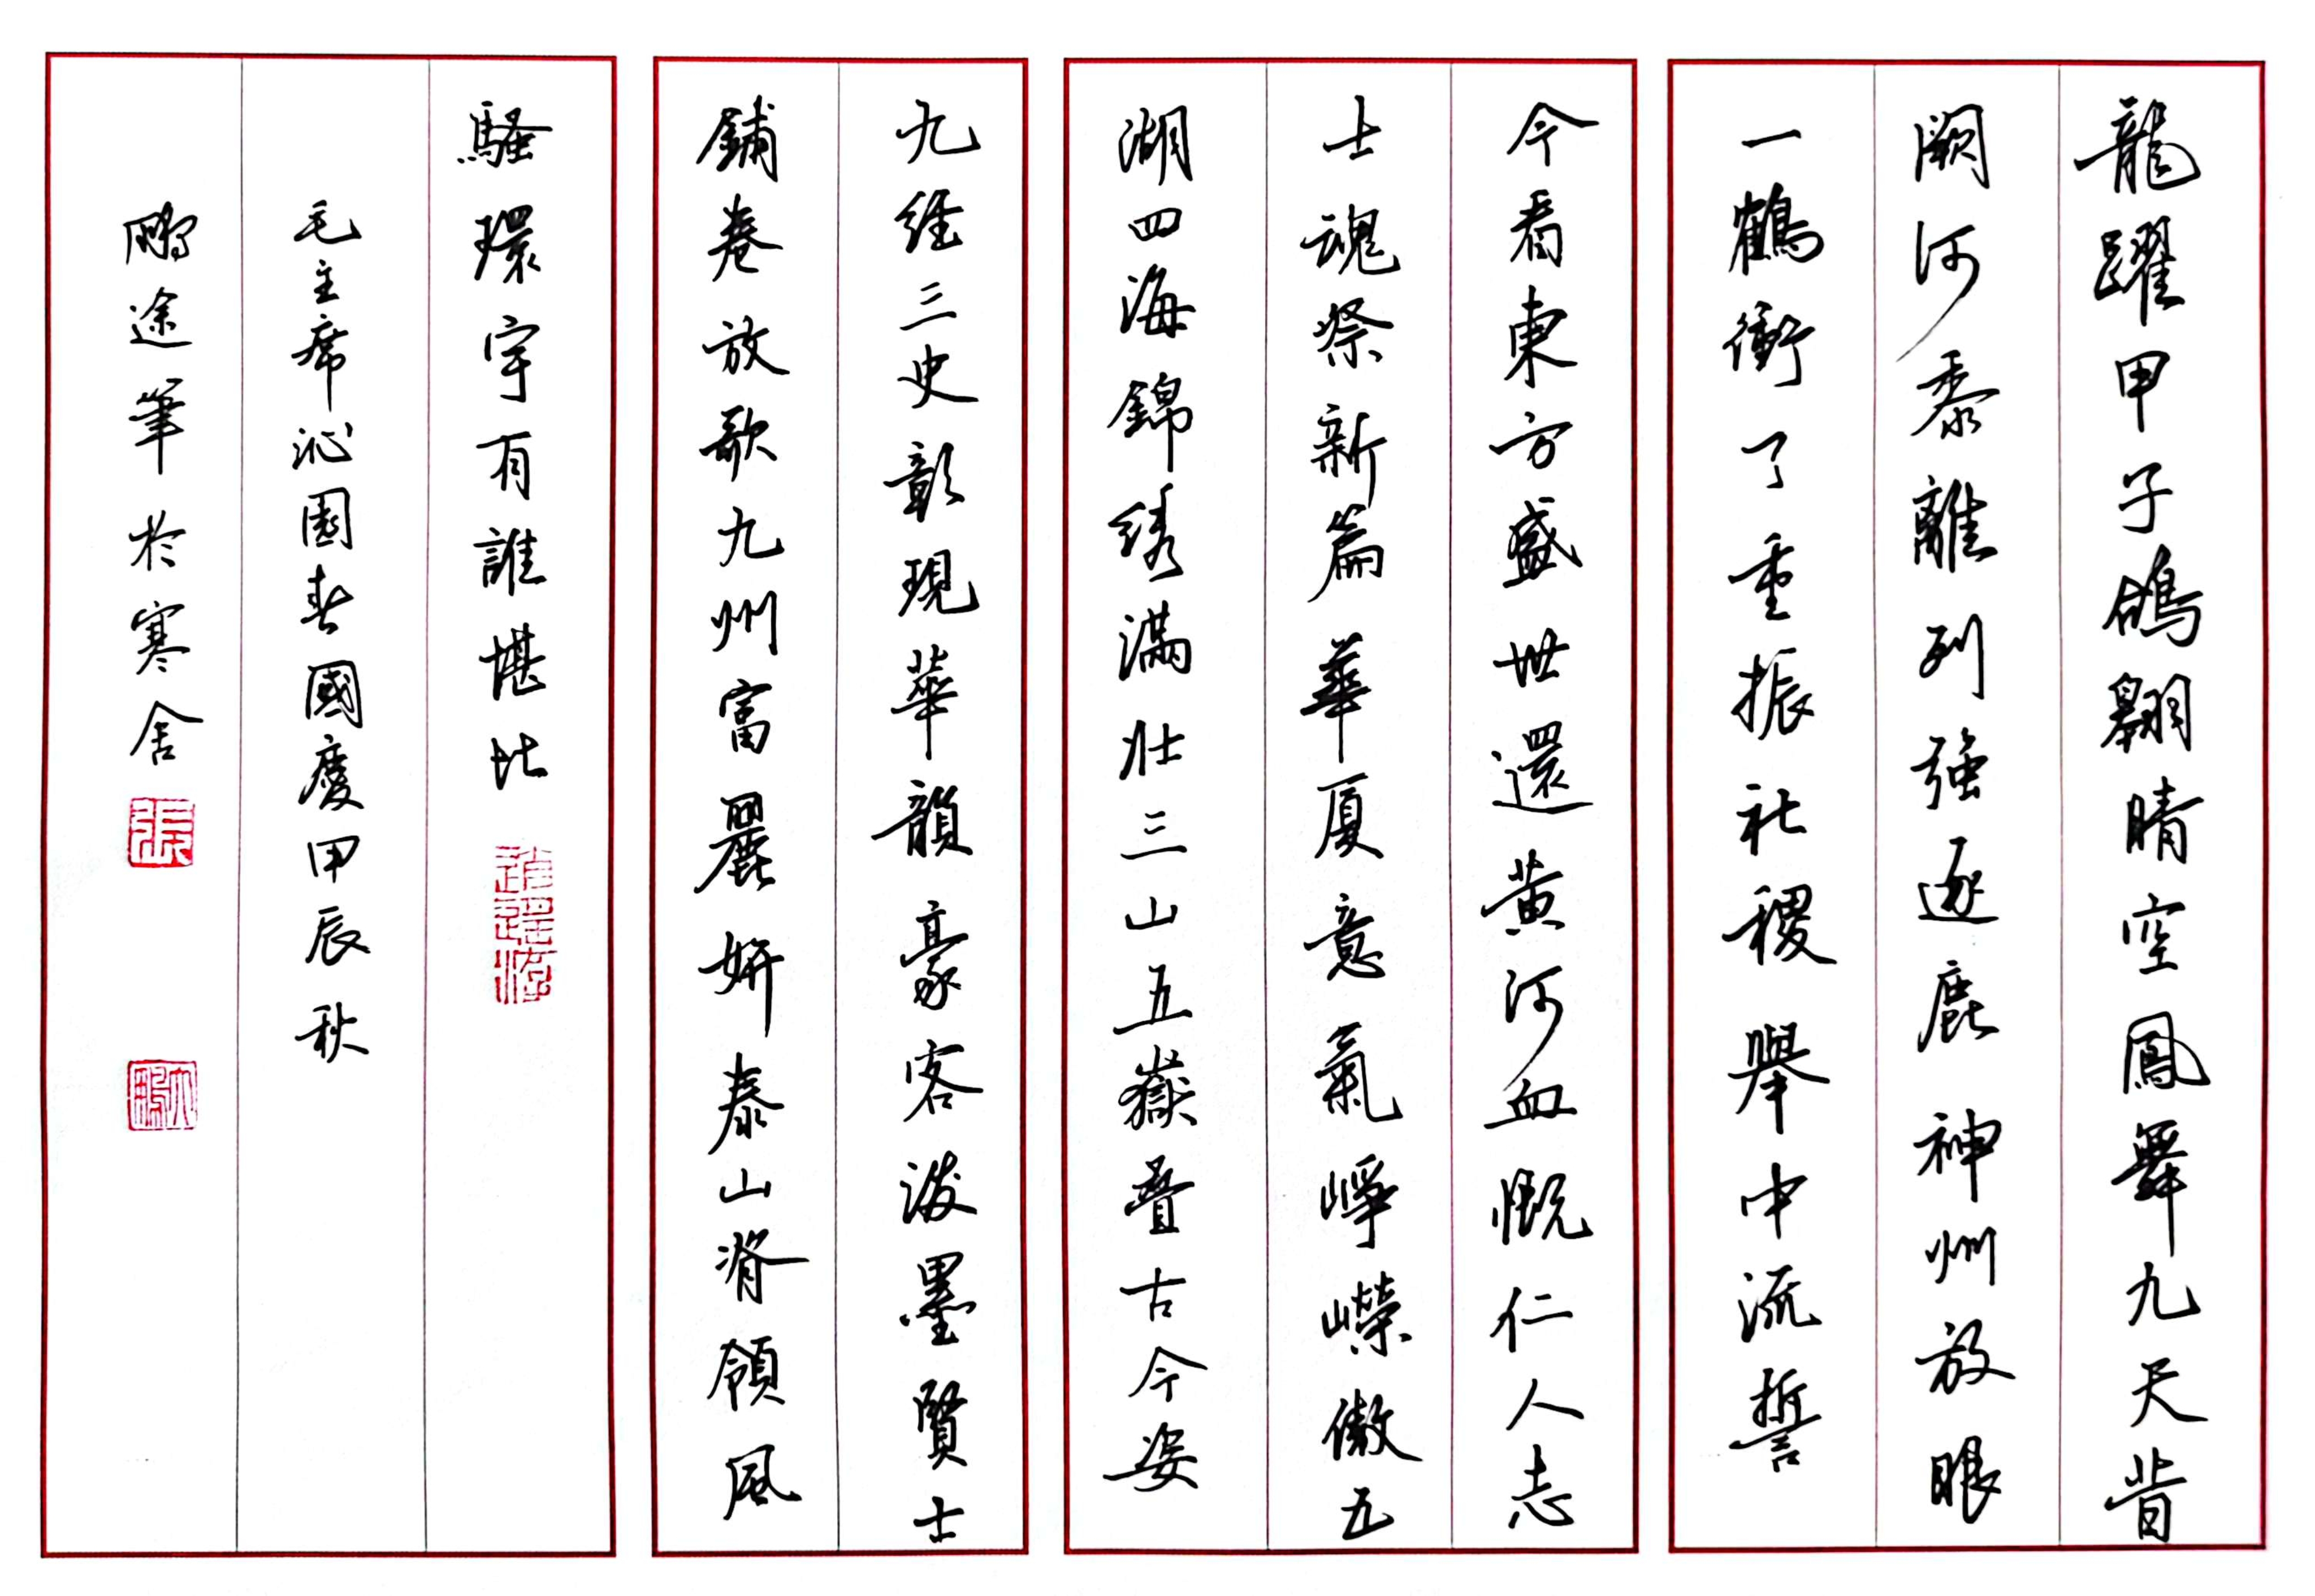 龍躍甲子鴿翺晴空鳳舞九天昔
闕河黍離列强逐鹿神州放眼
一鶴衝了重振社稷舉中流誓
今看東方盛世還黃河血慨仁人志
士魂祭新篇華厦意氣崢嶸傲五
湖四海錦绣滿壮三山五嶽疊古今姿
九經三史彰現華韻豪客潑墨賢士
鋪卷放歌九州富麗妍泰山脊領風
騷環宇有誰堪比
毛主席沁園春國慶甲辰秋
鵬途筆於寒舍
張